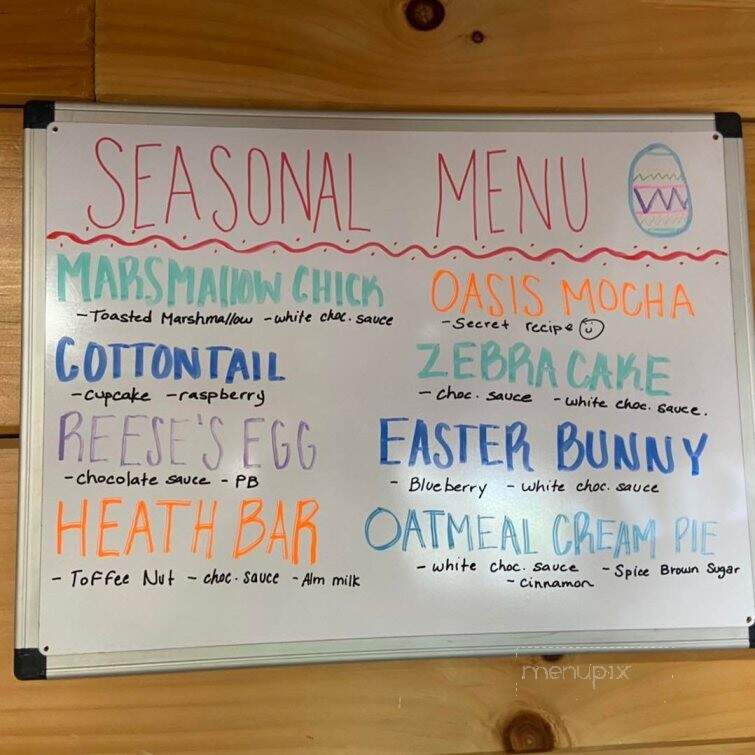 SEASONAL MENU
MARSMALLOW CHICK
- Toasted Marshmallow - white choc. sauce
COTTONTAIL
- cupcake - raspberry
REESE'S EGG
- chocolate sauce - PB
HEATH BAR
- Toffee Nut - choc. sauce - Alm milk
OASIS MOCHA
- Secret recipe
ZEBRA CAKE
- choc. sauce - white choc. sauce.
EASTER BUNNY
- Blueberry - white choc. sauce
OATMEAL CREAM PIE
- white choc. sauce - Spice Brown Sugar
- cinnamon
menupix